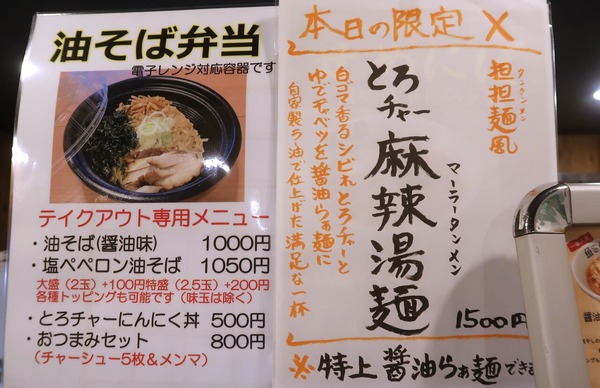 油そば弁当
電子レンジ対応容器です
テイクアウト専用メニュー
・油そば(醤油味) 1000円
・塩ペペロン油そば 1050円
大盛(2玉)+100円特盛(2.5玉)+200円
各種トッピングも可能です(味玉は除く)
・とろチャーにんにく丼 500円
・おつまみセット 800円
(チャーシュー5枚&メンマ)
本日の限定
担担麺風
タンタンメン
とろチャー麻辣湯麺
マーラータンメン
白ゴマ香るシビれとろチャーと
ゆでキャベツを醤油らぁ麺に
自家製ラー油で仕上げた満足な一杯
1500円
※特上醤油らぁ麺でき
醤油